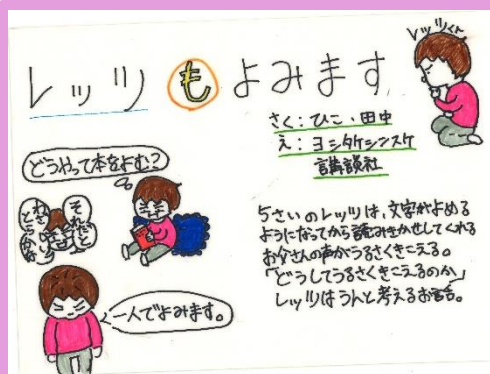 レッツくん
レッツもよみます
さく:ひこ・田中
え:ヨシタケシンスケ
講談社
どうやって本をよむ?
それだと
一人でよみます。
5さいのレッツは、文字がよめる
ようになってから読みきかせしてくれる
お父さんの声がうるさくきこえる。
「どうしてうるさくきこえるのか」
レッツはうんと考えるお話。